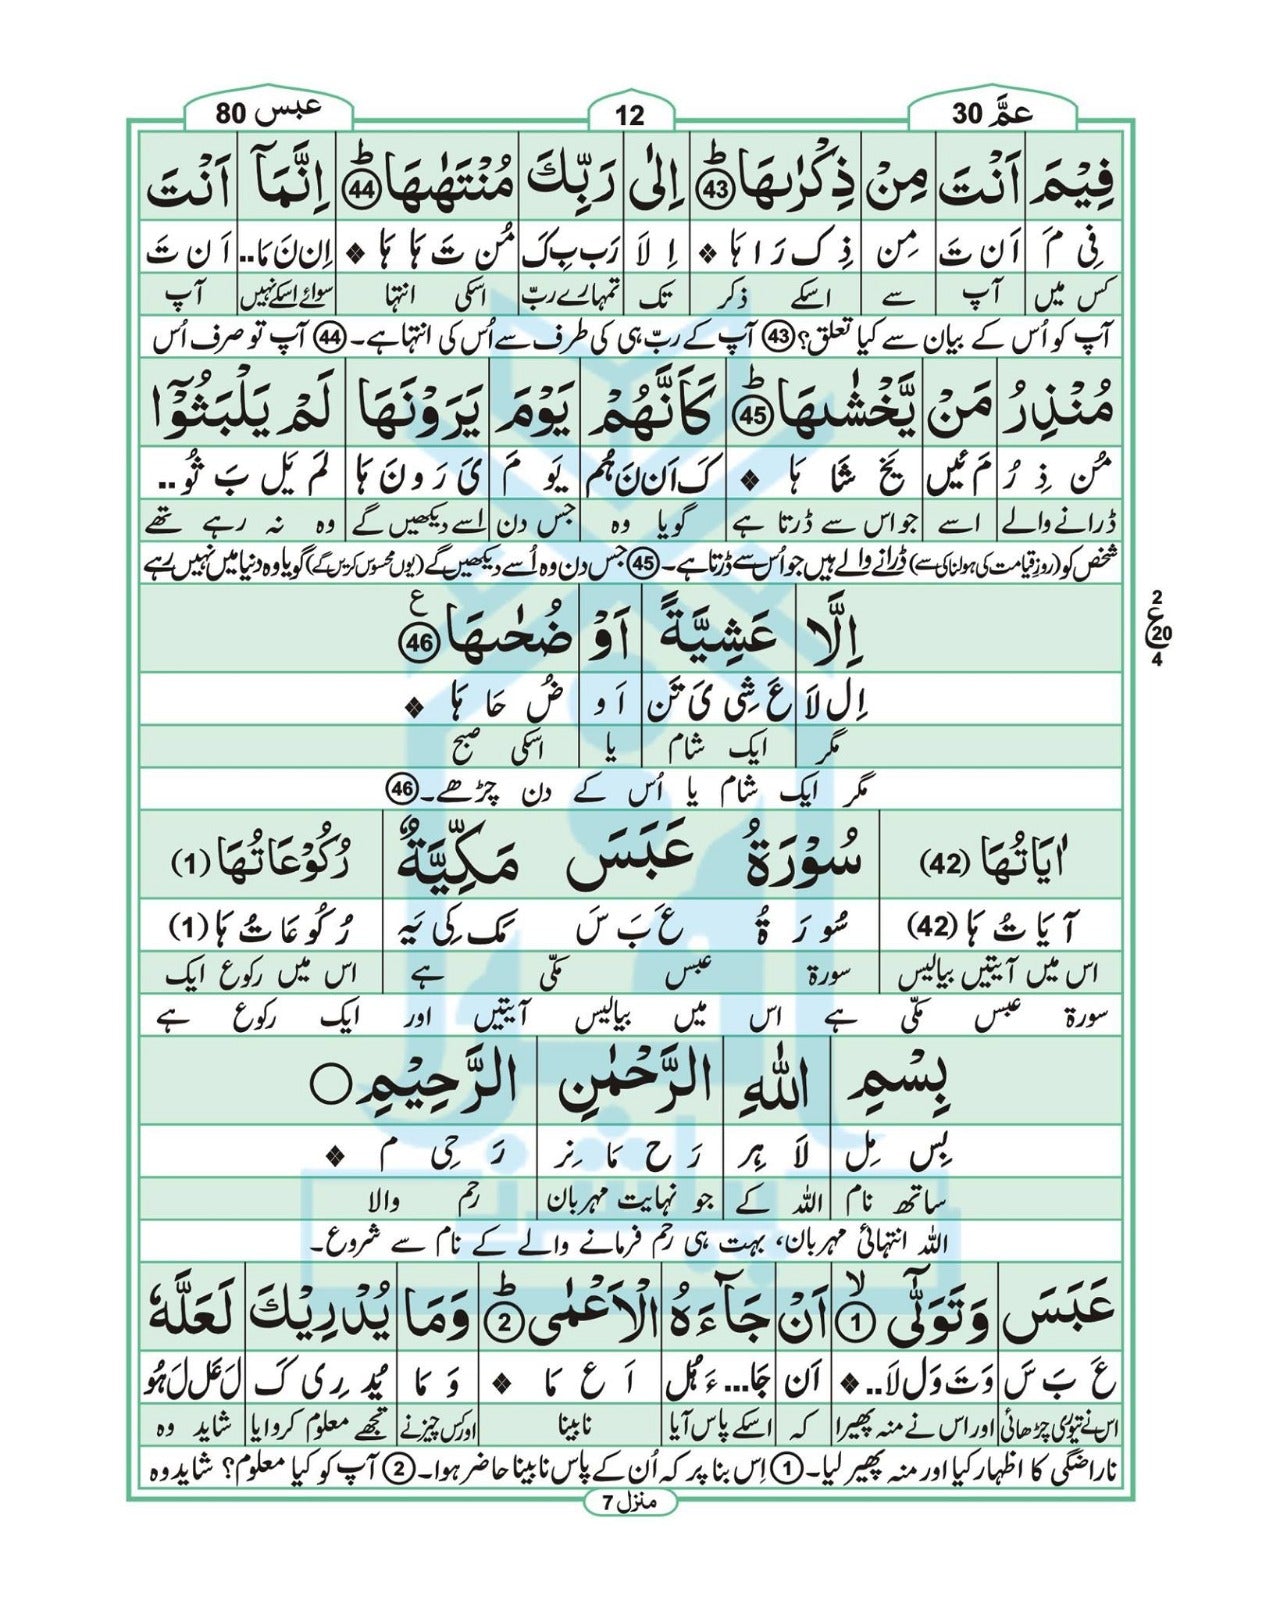 عمَّ 30
12
عبس 80
فِيْمَ اَنْتَ مِنْ ذِكْرٰىهَا ؕ 43 اِلٰى رَبِّكَ مُنْتَهٰىهَا ؕ 44 اِنَّمَاۤ اَنْتَ
فِی مَ اَن تَ مِن ذِ ک رَ ا ہَا ❖ اِ لَا رَب بِ کَ مُن تَ ہَا ہَا ❖ اِن نَ مَا.. اَ ن تَ
کس میں آپ سے اسکے ذکر تک تمہارے ربّ اسکی انتہا سوائے اسکے نہیں آپ
آپ کو اُس کے بیان سے کیا تعلق؟ 43 آپ کے ربّ ہی کی طرف سے اُس کی انتہا ہے۔ 44 آپ تو صرف اُس
مُنْذِرُ مَنْ يَّخْشٰىهَا ؕ 45 كَاَنَّهُمْ يَوْمَ يَرَوْنَهَا لَمْ يَلْبَثُوْۤا
مُن ذِ رُ مَ ئیں یَخ شَا ہَا ❖ کَ اَن نَ ہُم یَو مَ یَ رَ ونَ ہَا لَم یَل بَ ثُو..
ڈرانے والے اسے جو اس سے ڈرتا ہے گویا وہ جس دن اسے دیکھیں گے وہ نہ رہے تھے
شخص کو (روزِ قیامت کی ہولناکی سے) ڈرانے والے ہیں جو اُس سے ڈرتا ہے۔ 45 جس دن وہ اُسے دیکھیں گے (یوں محسوس کریں گے) گویا وہ دنیا میں نہیں رہے
اِلَّا عَشِيَّةً اَوْ ضُحٰىهَا ع 46
2 ع 20 4
اِل لَا عَ شِی یَ تَن اَ و ضُ حَا ہَا ❖
مگر ایک شام یا اسکی صبح
مگر ایک شام یا اُس کے دن چڑھے۔ 46
اٰيَاتُهَا (42) سُوْرَةُ عَبَسَ مَكِّيَّةٌ رُكُوْعَاتُهَا (1)
آ یَا تُ ہَا (42) سُو رَ ۃُ عَ بَ سَ مَک کِی یَہ رُ کُو عَا تُ ہَا (1)
اس میں آیتیں بیالیس سورۃ عبس مکّی ہے اس میں رکوع ایک
سورۃ عبس مکّی ہے اس میں بیالیس آیتیں اور ایک رکوع ہے
بِسْمِ اللّٰهِ الرَّحْمٰنِ الرَّحِيْمِ
بِس مِل لَا ہِر رَ ح مَا نِر رَ حِی م ❖
ساتھ نام اللہ کے جو نہایت مہربان رحم والا
اللہ انتہائی مہربان، بہت ہی رحم فرمانے والے کے نام سے شروع۔
عَبَسَ وَتَوَلّٰىۤ ۙ 1 اَنْ جَآءَهُ الْاَعْمٰى ؕ 2 وَمَا يُدْرِيْكَ لَعَلَّهٗ
عَ بَ سَ وَ تَ وَل لَا.. ❖ اَن جَا... ءَ ہُل اَ ع مَا ❖ وَ مَا یُد رِی کَ لَ عَل لَ ہُو
اس نے تیوری چڑھائی اور اس نے منہ پھیرا کہ اسکے پاس آیا نابینا اور کس چیز نے تجھے معلوم کروایا شاید وہ
ناراضگی کا اظہار کیا اور منہ پھیر لیا۔ 1 اِس بنا پر کہ اُن کے پاس نابینا حاضر ہوا۔ 2 آپ کو کیا معلوم؟ شاید وہ
منزل 7